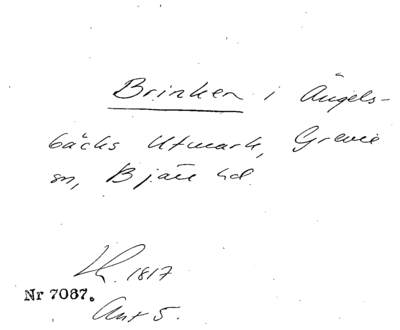 Brinken i Ängels-
bäcks Utmark, Grevie
sn, Bjäre hd.
Kr. 1817
Nr 7087.
Ant 5.